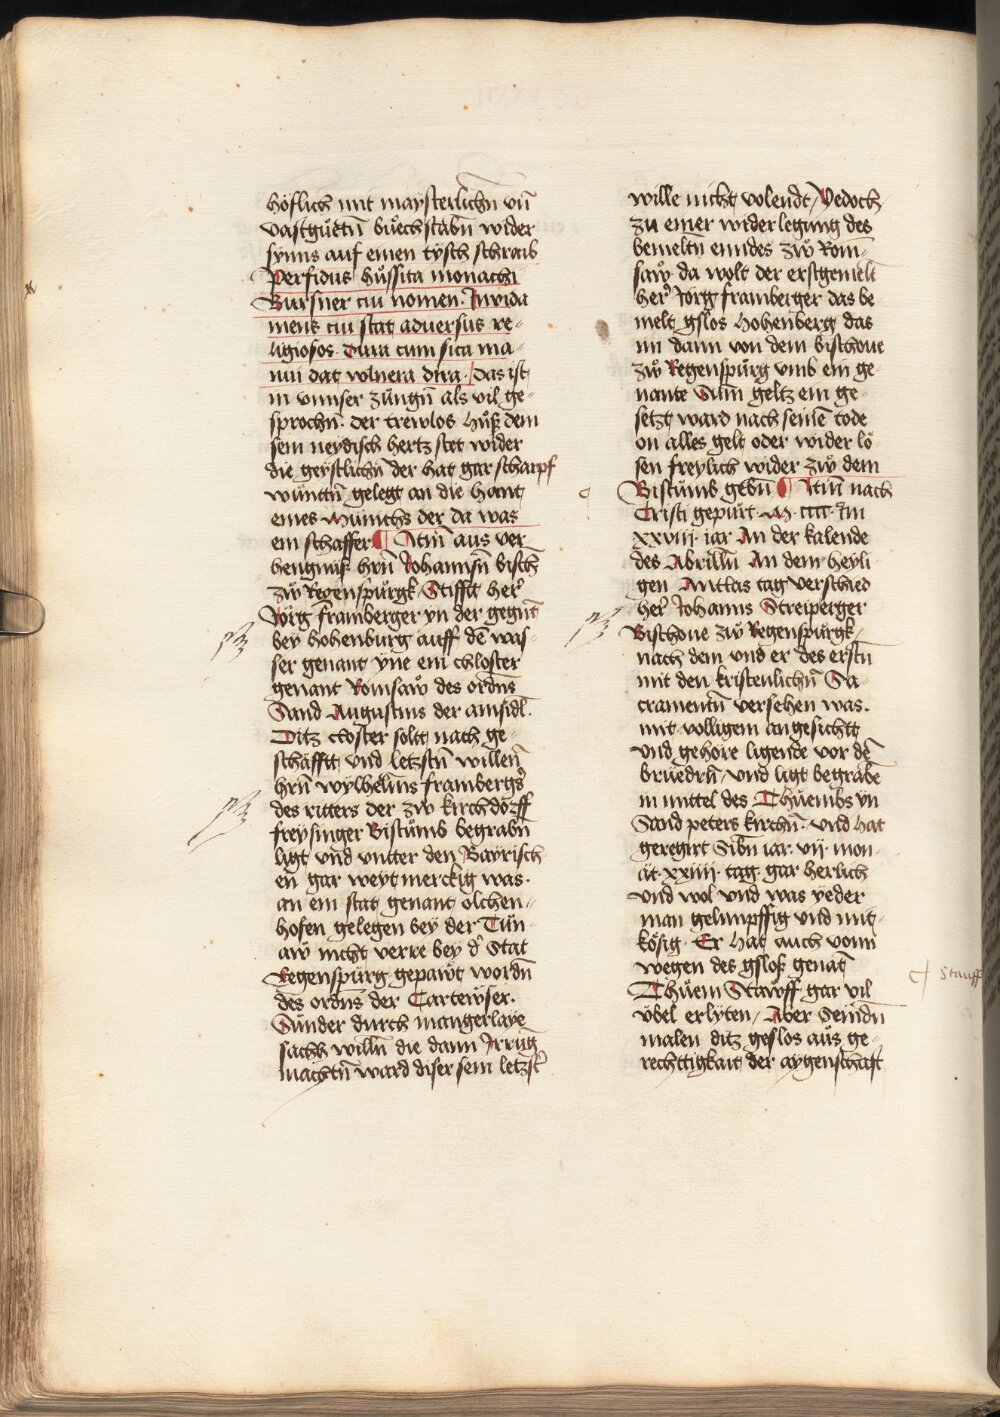 höflich mit maysterlichn vn̄
vastgůetn̄ bůechstabn̄ wider
synns auf einen tysch schraib
Perfidus hůssita monachi
Bursner cui nomen. Invida
mens cui stat adversus re-
ligiosos. Dura cum sica ma-
nui dat volnera dira. das ist
in vnnser zůngn̄ als vil ge-
sprochn̄. der trewlos Hůß dem
sein neydisch hertz stet wider
die geystlichn̄ der hat gar scharpf
wůntn̄ gelegt an die hant
eines Münichs der da was
ein schaffer ¶ Itm̄ aus ver-
hengnuß hrn̄ Johannsn̄ bisch
zů Regenspůrgk Stifft her
Jörg framberger yn der gegnt
bey hohenburg auff dē was-
ser genant yne ein chloster
genant Romsaẘ des ordns
Sand Augustins der ainsidl.
Ditz closter sollt nach ge-
schäfftt vnd letzstn̄ willen
hrn̄ wylhelms frambergs
des ritters der zẘ kirchdorff
freysinger Bistůmb begrabn̄
ligt vnd vntter den Bayrisch-
en gar weyt merckig was.
an ein stat genant olchen-
hofen gelegen bey der Tůn-
aẘ nicht verre bey d' Stat
Regenspůrg gepaẘt wordn̄
des ordns der Carteẘser.
Sůnder durch mangerlaye
sachh willn̄ die dann Irrung
machtn̄ ward diser sein letzst
wille nicht volendt / Yedoch
zu einer widerlegung des
bemeltn̄ enndes zẘ Rom-
saẘ da wolt der erstgemelt
her Jörg framberger das be-
melt gslos Hohenberg das
im dann von dem bischoue
zẘ Regenspůrg vmb ein ge-
nante Sum̄ geltz ein ge-
setzt ward nach seinē tode
on alles gelt oder wider lö-
sen freylich wider zẘ dem
Bistůmb gebn̄ ¶ Itm̄ nach
Cristi gepürt M. cccc. Im
xxviij. iar An der kalende
des Abrilln̄ An dem heyli-
gen Antlas tag verschied
her Johanns Streiperger
Bischoue zẘ Regenspůrgk,
nach dem vnd er des erstn̄
mit den kristenlichn̄ Sa-
cramentn̄ versehen was.
mit volligem angesichtt
vnd gehöre ligende vor dē
bruedrn̄ / vnd ligt begrabē
in mittel des Thůembs yn
Sand peters kirchn̄. vnd hat
geregirt Sibn̄ iar. vij. mon-
at. xxiiij. tag. gar herlich
vnd wol vnd was yeder
man gelimpffig vnd mit-
kösig. Er hat auch vonn
wegen des gsloß genāt
Thůem Staẘff gar vil
vbel erlyten / Aber Seindn̄
malen ditz geslos aůs ge-
rechttigkait der aygenschaft
Stauff